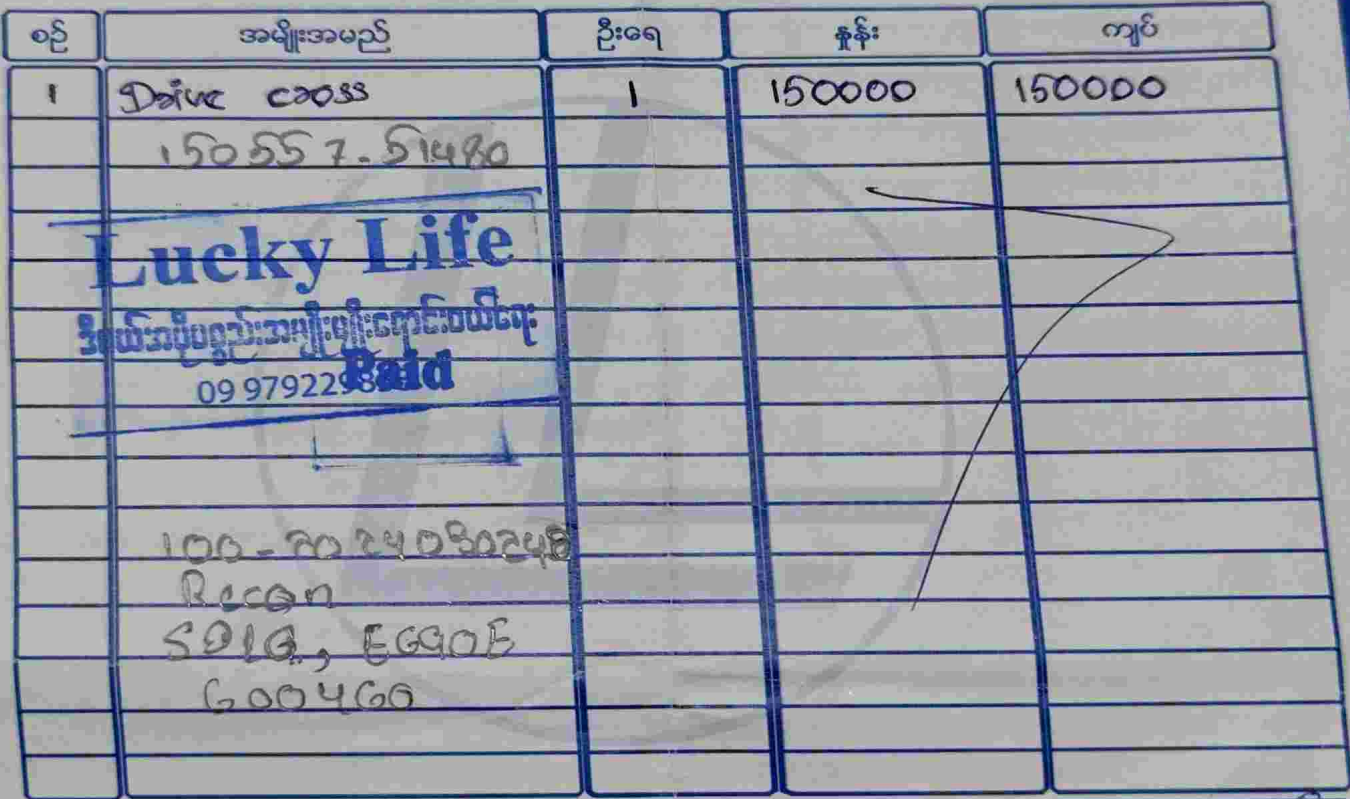 စဉ် အမျိုးအမည် ဦးရေ နှုန်း ကျပ်
1 Drive cross 1 150000 150000
150557-51480
Lucky Life
ဒီဇယ်အပိုပစ္စည်းအမျိုးမျိုးရောင်းဝယ်ရေး
Paid
09 9792298
100-2024030248
Recon